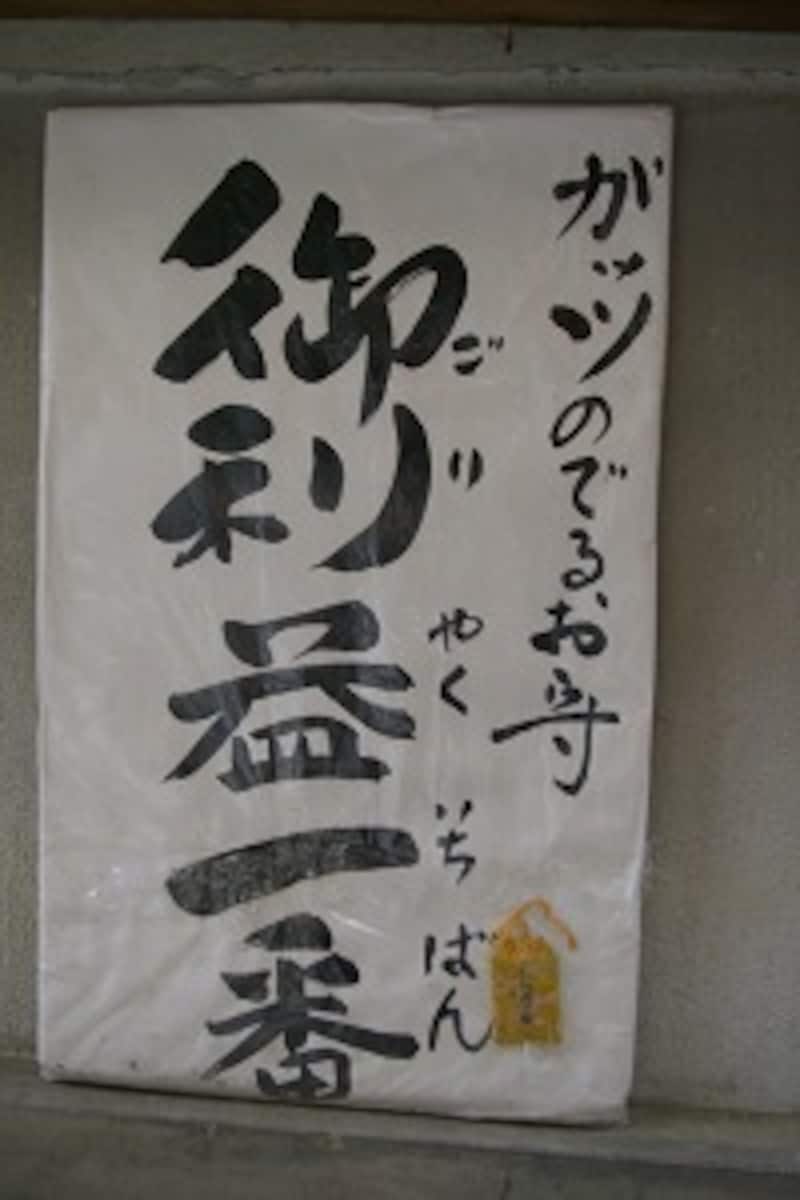 ガッツのでるお守
御利益一番
ごりやくいちばん